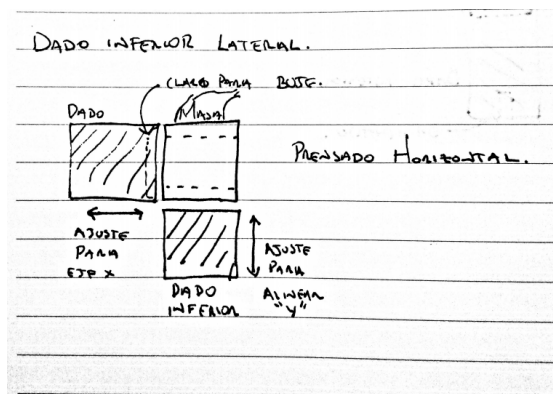 DADO INFERIOR LATERAL.
CLARO PARA BUJE.
DADO
MASA
PRENSADO HORIZONTAL.
AJUSTE
PARA
EJE X
AJUSTE
PARA
ALINEAR
"Y"
DADO
INFERIOR